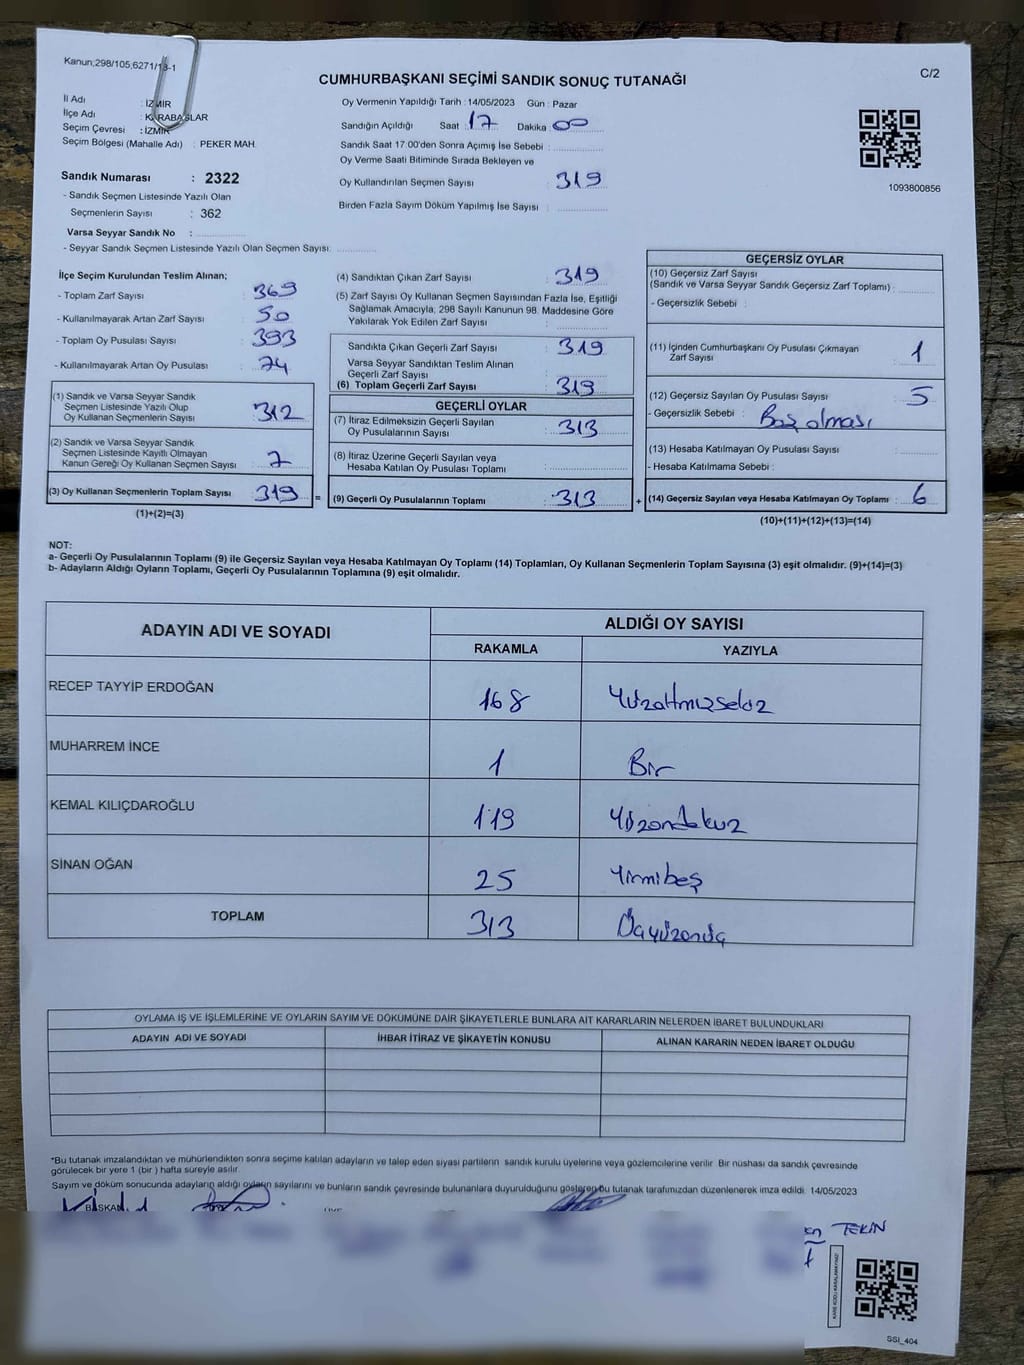 Kanun;298/105,6271/13-1
C/2
CUMHURBAŞKANI SEÇİMİ SANDIK SONUÇ TUTANAĞI
İl Adı : İZMİR
İlçe Adı : KARABAĞLAR
Seçim Çevresi : İZMİR
Seçim Bölgesi (Mahalle Adı) : PEKER MAH.
Oy Vermenin Yapıldığı Tarih : 14/05/2023 Gün : Pazar
Sandığın Açıldığı Saat : 17 Dakika : 00
Sandık Saat 17:00'den Sonra Açımış İse Sebebi :
Oy Verme Saati Bitiminde Sırada Bekleyen ve
Oy Kullandırılan Seçmen Sayısı : 319
Birden Fazla Sayım Döküm Yapılmış İse Sayısı :
1093800856
Sandık Numarası : 2322
- Sandık Seçmen Listesinde Yazılı Olan
Seçmenlerin Sayısı : 362
Varsa Seyyar Sandık No :
- Seyyar Sandık Seçmen Listesinde Yazılı Olan Seçmen Sayısı:
İlçe Seçim Kurulundan Teslim Alınan;
- Toplam Zarf Sayısı : 369
- Kullanılmayarak Artan Zarf Sayısı : 50
- Toplam Oy Pusulası Sayısı : 393
- Kullanılmayarak Artan Oy Pusulası : 74
(1) Sandık ve Varsa Seyyar Sandık
Seçmen Listesinde Yazılı Olup
Oy Kullanan Seçmenlerin Sayısı : 312
(2) Sandık ve Varsa Seyyar Sandık
Seçmen Listesinde Kayıtlı Olmayan
Kanun Gereği Oy Kullanan Seçmen Sayısı : 7
(3) Oy Kullanan Seçmenlerin Toplam Sayısı : 319 =
(1)+(2)=(3)
(4) Sandıktan Çıkan Zarf Sayısı : 319
(5) Zarf Sayısı Oy Kullanan Seçmen Sayısından Fazla İse, Eşitliği
Sağlamak Amacıyla; 298 Sayılı Kanunun 98. Maddesine Göre
Yakılarak Yok Edilen Zarf Sayısı :
Sandıkta Çıkan Geçerli Zarf Sayısı : 319
Varsa Seyyar Sandıktan Teslim Alınan
Geçerli Zarf Sayısı :
(6) Toplam Geçerli Zarf Sayısı : 319
GEÇERLİ OYLAR
(7) İtiraz Edilmeksizin Geçerli Sayılan
Oy Pusulalarının Sayısı : 313
(8) İtiraz Üzerine Geçerli Sayılan veya
Hesaba Katılan Oy Pusulası Toplamı :
(9) Geçerli Oy Pusulalarının Toplamı : 313 +
GEÇERSİZ OYLAR
(10) Geçersiz Zarf Sayısı
(Sandık ve Varsa Seyyar Sandık Geçersiz Zarf Toplamı) :
- Geçersizlik Sebebi :
(11) İçinden Cumhurbaşkanı Oy Pusulası Çıkmayan
Zarf Sayısı : 1
(12) Geçersiz Sayılan Oy Pusulası Sayısı : 5
- Geçersizlik Sebebi : Boş olması
(13) Hesaba Katılmayan Oy Pusulası Sayısı :
- Hesaba Katılmama Sebebi :
(14) Geçersiz Sayılan veya Hesaba Katılmayan Oy Toplamı : 6
(10)+(11)+(12)+(13)=(14)
NOT:
a- Geçerli Oy Pusulalarının Toplamı (9) ile Geçersiz Sayılan veya Hesaba Katılmayan Oy Toplamı (14) Toplamları, Oy Kullanan Seçmenlerin Toplam Sayısına (3) eşit olmalıdır. (9)+(14)=(3)
b- Adayların Aldığı Oyların Toplamı, Geçerli Oy Pusulalarının Toplamına (9) eşit olmalıdır.
ADAYIN ADI VE SOYADI ALDIĞI OY SAYISI
RAKAMLA YAZIYLA
RECEP TAYYİP ERDOĞAN 168 Yüzaltmışsekiz
MUHARREM İNCE 1 Bir
KEMAL KILIÇDAROĞLU 119 Yüzondokuz
SİNAN OĞAN 25 Yirmibeş
TOPLAM 313 Üçyüzonüç
OYLAMA İŞ VE İŞLEMLERİNE VE OYLARIN SAYIM VE DÖKÜMÜNE DAİR ŞİKAYETLERLE BUNLARA AİT KARARLARIN NELERDEN İBARET BULUNDUKLARI
ADAYIN ADI VE SOYADI İHBAR İTİRAZ VE ŞİKAYETİN KONUSU ALINAN KARARIN NEDEN İBARET OLDUĞU
*Bu tutanak imzalandıktan ve mühürlendikten sonra seçime katılan adayların ve talep eden siyasi partilerin sandık kurulu üyelerine veya gözlemcilerine verilir. Bir nüshası da sandık çevresinde
görülecek bir yere 1 (bir ) hafta süreyle asılır.
Sayım ve döküm sonucunda adayların aldığı oyların sayılarını ve bunların sandık çevresinde bulunanlara duyurulduğunu gösteren bu tutanak tarafımızdan düzenlenerek imza edildi. 14/05/2023
BAŞKAN
TEKİN
SSI_404